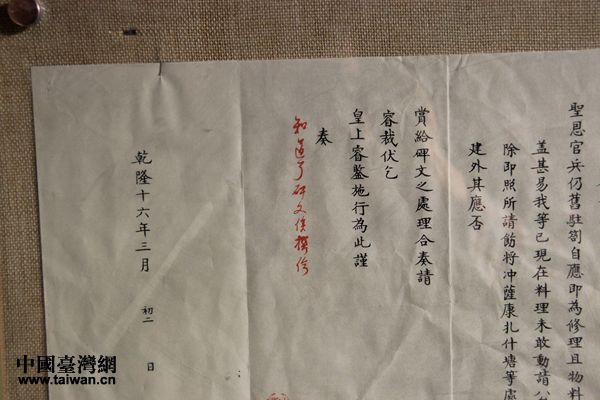 聖恩官兵仍舊駐劄自應即為修理且物料
蓋甚易我等已現在料理未敢動請公
除即照所請飭將冲薩康扎什塘等處
建外其應否
賞給碑文之處理合奏請
睿裁伏乞
皇上睿鑒施行為此謹
奏
知道了碑文俟撰給
乾隆十六年三月 初二 日
中國臺灣網
www.taiwan.cn